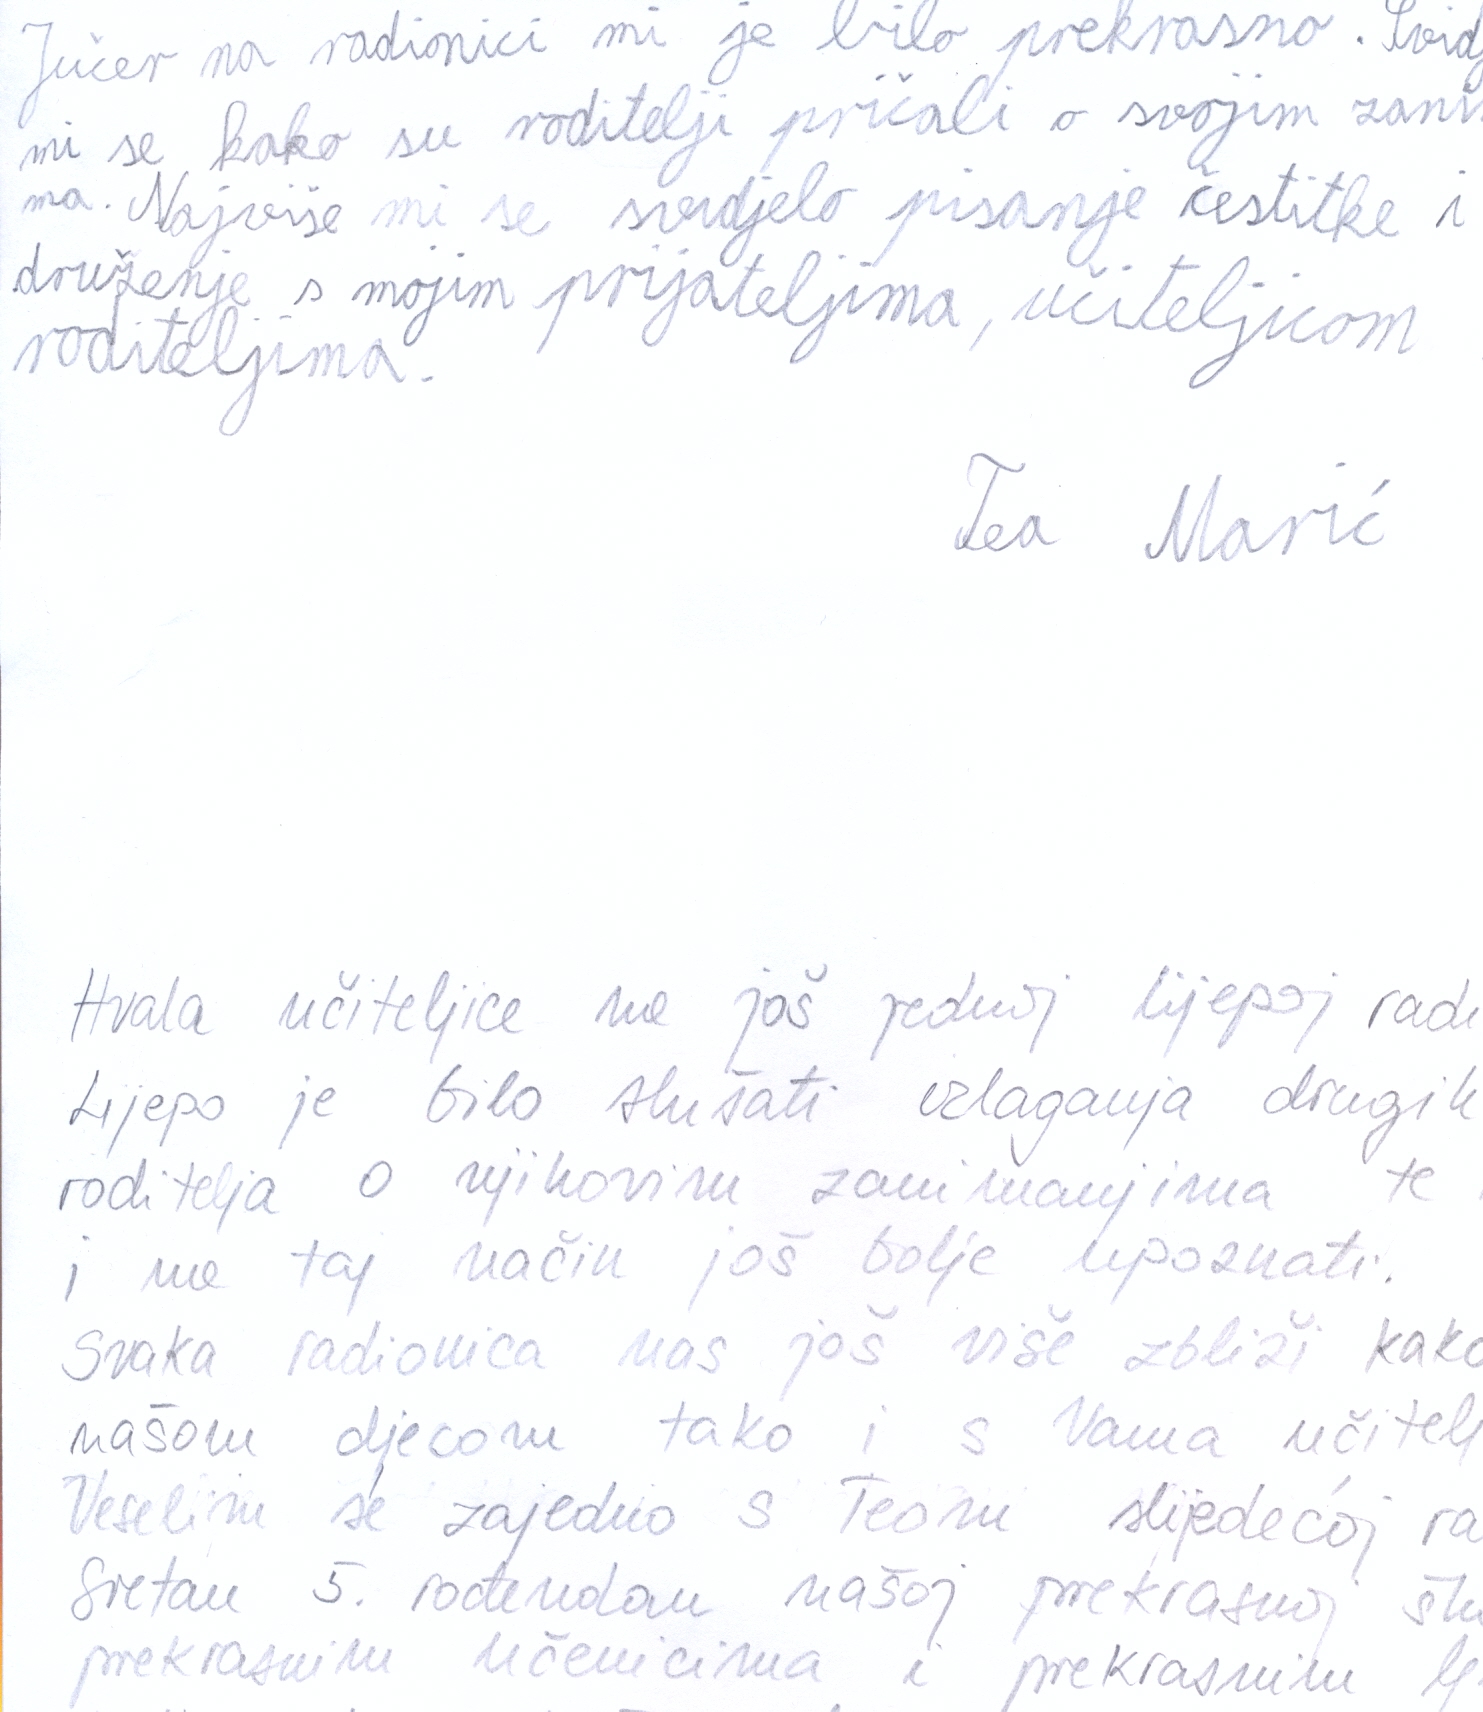 Jučer na radionici mi je bilo prekrasno. Svidj
mi se kako su roditelji pričali o svojim zanim
ma. Najviše mi se svidjelo pisanje čestitke i
druženje s mojim prijateljima, učiteljicom
roditeljima.
Tea Marić
Hvala učiteljice na još jednoj lijepoj radi
Lijepo je bilo slušati izlaganja drugih
roditelja o njihovim zanimanjima te
i na taj način još bolje upoznati.
Svaka radionica nas još više zbliži kako
našom djecom tako i s Vama učitelj
Veselim se zajedno s Teom slijedećoj ra
Sretan 5. rođendan našoj prekrasnoj šk
prekrasnim učenicima i prekrasnim lj